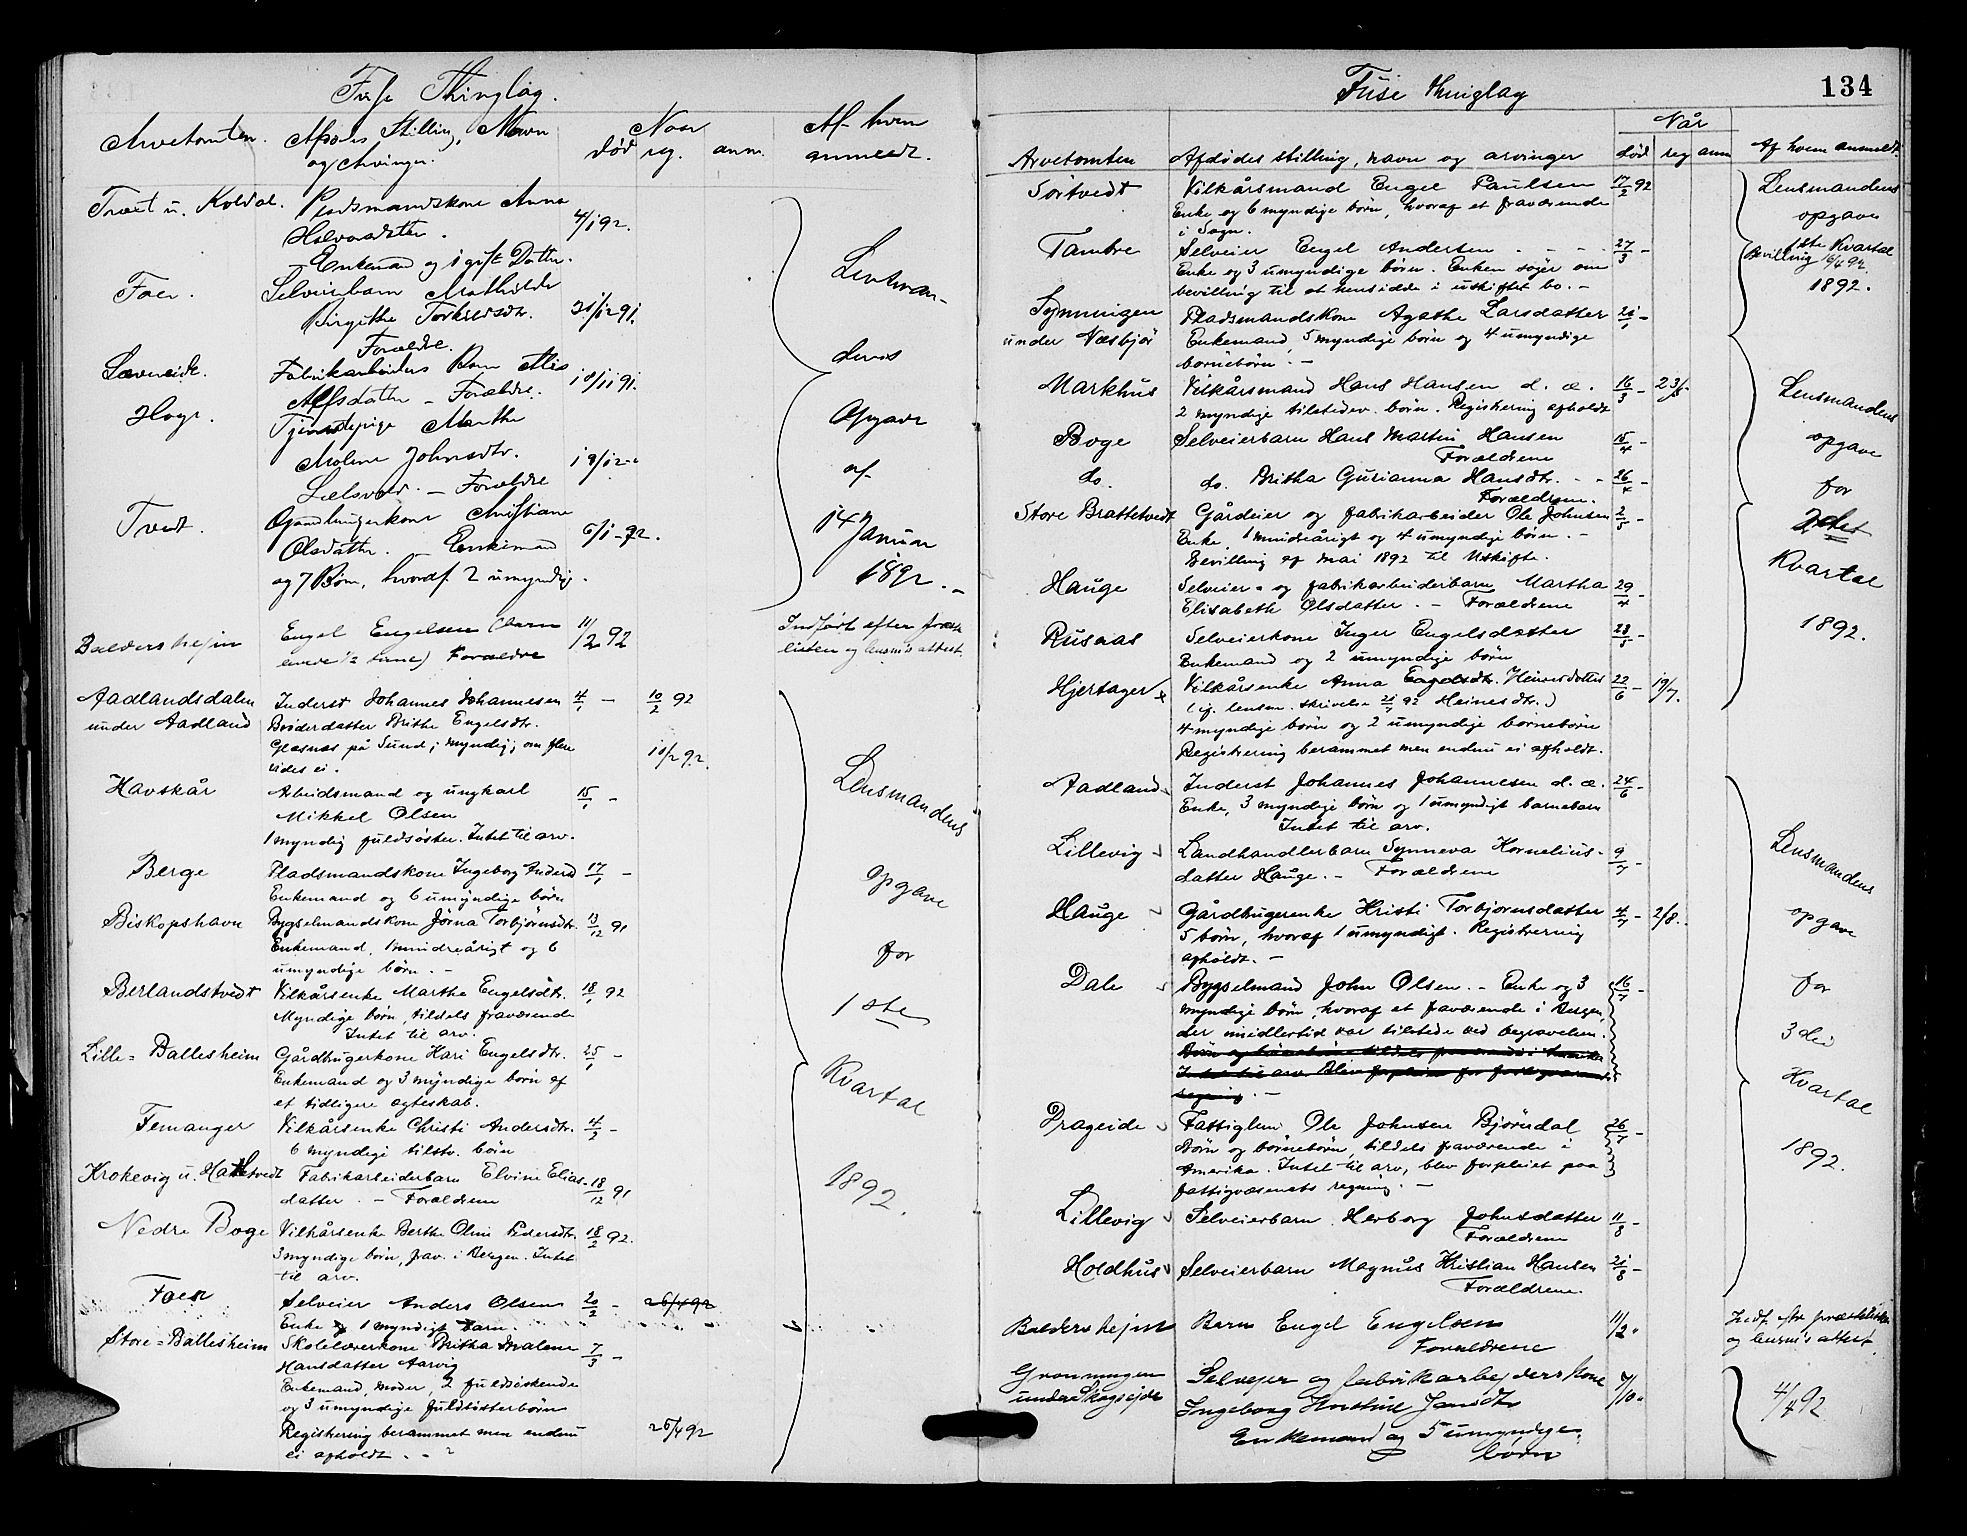 Fuse Thinglag.
Arvetomten. Afdødes Stilling, Navn
og Arvinger.
Naar
død reg. anm.
Af hvem
anmeldt.
Træet u. Koldal. Pladsmandskone Anna
4/1 92.
Enkemand og 1 gift Datter.
Foer. Selveierbarn Mathilde
Birgithe Torkildsdtr. 21/12 91.
Forældre.
Sævareide. Fabrikarbeiders Barn
Alfsdatter – Forældre. 18/11 91.
Tjenestepige Marthe
Malene Johnsdtr. 19/12 "
– Forældre
Tvedt. Gaardbrugerkone Christiane
Olsdatter. – Enkemand 6/1 – 92.
og 7 Børn, hvoraf 2 umyndige.
Lensman-
dens
Opgave
af
14 Januar
1892. –
Baldersheim Engel Engelsen (barn 11/2 92
Forældre
Indført efter præste
listen og lensm's attest.
Aadlandsdalen Inderst Johannes Johannesen 4/1 – 10/2 92
under Aadland Broderdatter Brithe Engelsdtr.
Glæsnæs på Sund; myndig; om flere 10/2 92.
vides ei.
Havskår Arbeidsmand og ungkarl 15/1 –
Mikkel Olsen
1 myndig fuldsøster. Intet til arv.
Berge Pladsmandskone Ingeborg Andersd 17/1 –
Enkemand og 6 umyndige børn
Biskopshavn Bygselmandskone Jørna Torbjørnsdtr. 13/12 91
Enkemand, 1 mindreårigt og 6
umyndige børn. –
Berlandstvedt Vilkårsenke Marthe Engelsdtr. 18/1 92
Myndige børn, tildels fraværende
Intet til arv.
Lille = Ballesheim Gårdbrugerkone Kari Engelsdtr. 25/1 –
Enkemand og 3 myndige børn af
et tidligere ægteskab.
Femanger Vilkårsenke Christi Andersdtr. 4/2 –
6 myndige tilstv. børn
Krokevig u. Hatletvedt Fabrikarbeiderbarn Elvine Elias- 18/12 91
datter. – Forældrene
Nedre Boge Vilkårsenke Berthe Oline Pedersdtr. 18/2 92.
3 myndige børn, frav. i Bergen. Intet
til arv.
Foer Selveier Anders Olsen 20/2 – 26/4 92
Enke og 1 myndigt barn.
Store = Ballesheim Skolelærerkone Britha Malene 7/3 –
Hansdatter Aarvig
Enkemand, moder, 2 fuldsøskende
og 3 umyndige fuldsøsterbørn
Registrering berammet men endnu 26/4 92
ei afholdt. –
Lensmandens
opgave
for
1ste
Kvartal
1892.
Fuse thinglag 134
Når
Arvetomten Afdødes stilling, navn og arvinger død reg anm Af hvem anmeldt.
Sørtvedt Vilkårsmand Engel Paulsen 17/2 92
Enke og 6 myndige børn, hvoraf et fraværende
i Sogn.
Tambre Selveier Engel Andersen – – – 27/3 –
Enke og 3 umyndige børn. Enken søger om
bevilling til at hensidde i uskiftet bo. –
Lensmandens
opgave
1ste Kvartal
Bevilling 16/4 92.
1892.
Pladsmandskone Agathe Larsdatter 21/1 –
under Næsbjør Enkemand, 5 myndige børn og 4 umyndige
børnebørn. –
Markhus Vilkårsmand Hans Hansen d. æ. 16/3 – 23/5
2 myndige tilstedev. børn. Registrering afholdt
Boge Selveierbarn Hans Martin Hansen 15/4 –
Forældrene
do. do. Britha Gurianna Hansdtr. – – 26/4 –
Forældrene.
Store Brattetvedt Gårdeier og fabrikarbeider Ole Johnsen 2/5 –
Enke, 1 mindreårigt og 4 umyndige børn. –
Bevilling af mai 1892 til Uskifte.
Hauge Selveier= og fabrikarbeiderbarn Martha 29/4 –
Elisabeth Olsdatter. – Forældrene
Rusnæs Selveierkone Inger Engelsdatter 28/5 –
Enkemand og 2 umyndige børn
Hjertager Vilkårsenke Anna Engelsdtr. Heinesdatter 22/6 – 19/7.
(ig. lensm. skrivelse 21/7 92 Heinesdtr.)
4 myndige børn og 2 umyndige børnebørn
Registrering berammet men endnu ei afholdt.
Lensmandens
opgave
for
2det
Kvartal
1892.
Aadland Inderst Johannes Johannesen d. æ. 24/6 –
Enke, 3 myndige børn og 1 umyndigt barnebarn
Intet til arv.
Lillevig Landhandlerbarn Synneva Kornelius- 9/7 –
datter Hauge. – Forældrene
Hauge Gårdbrugerenke Kristi Torbjørnsdatter 4/7 – 2/8.
5 børn, hvoraf 1 umyndigt. Registrering
afholdt. –
Dale Bygselmand John Olsen. – Enke og 3 16/7 –
myndige børn, hvoraf et fraværende i Bergen,
der imidlertid var tilstede ved begravelsen.
Børn og børnebørn tildels fraværende i Amerika
Intet til arv. Blev forpleiet
regning. –
Drageide Fattiglem Ole Johnsen Bjørndal 26/7 –
Børn og børnebørn, tildels fraværende i
Amerika. Intet til arv, blev forpleiet paa
fattigvæsenets regning. –
Lillevig Selveierbarn Herborg Johnsdatter 11/8 –
Forældrene
Holdhus Selveierbarn Magnus Kristian Hansen 21/8 –
Forældrene.
Lensmandens
opgave
for
3die
Kvartal
1892.
Baldersheim Barn Engel Engelsen 11/2 "
Forældrene
Indf. efter præstelisten
og lensm's attest.
Grønningen Selveier og fabrikarbejderskone 7/10 "
under Skogseide Ingeborg
Enkemand og 5 umyndige
børn
4/4 92